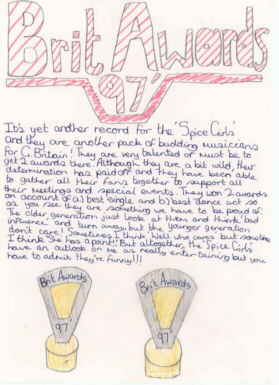 Brit Awards
97'
It's yet another record for the 'Spice Girls'
and they are another pack of budding musicians
for G. Britain! They are very talented or must be to
get 2 awards there. Although they are a bit wild, their
determination has paid off and they have been able
to gather all their fans together to support all
their meetings and special events. They won 2 awards
on account of a) best single, and b) best dance act so
as you see they are something we have to be proud of.
The older generation just look at them and think 'bad
influence' and turn away but the younger generation
don't care! Sometimes I think Well who cares but sometimes
I think She has a point! But altogether, the Spice Girls
have an attitude on me as really entertaining but you
have to admit they're funny!!!
Brit Awards
97
Brit Awards
97